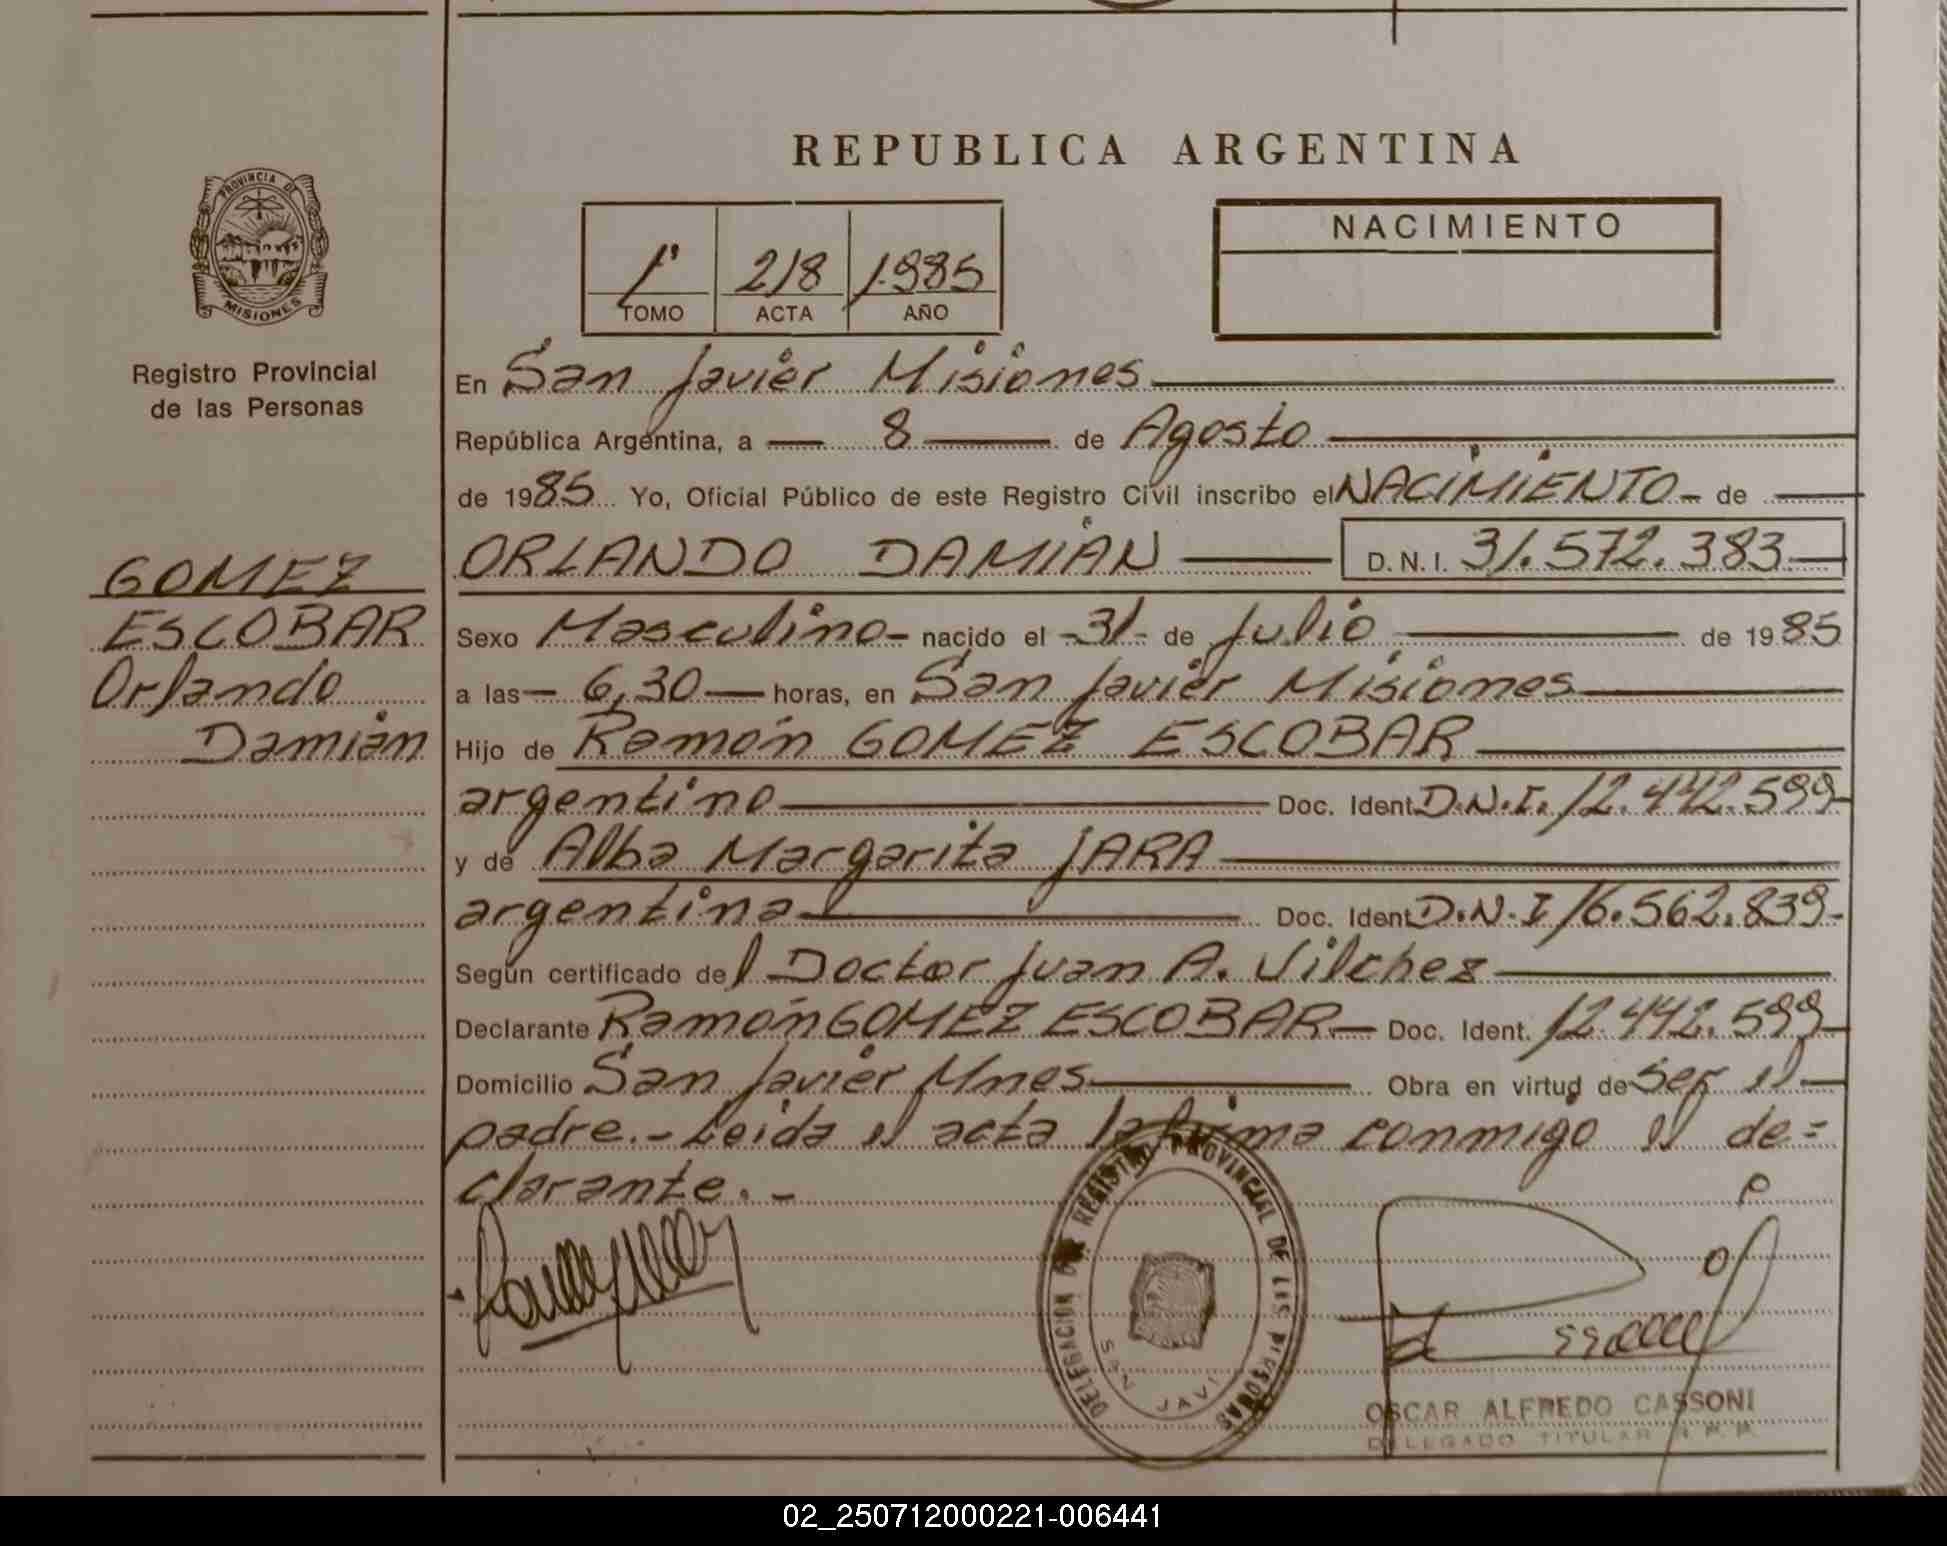 REPUBLICA ARGENTINA
PROVINCIA DE
MISIONES
Registro Provincial
de las Personas
1º 218 1.985
TOMO ACTA AÑO
NACIMIENTO
En San Javier Misiones
República Argentina, a 8 de Agosto
de 1985 Yo, Oficial Público de este Registro Civil inscribo el NACIMIENTO de
GOMEZ
ESCOBAR
Orlando
Damián
ORLANDO DAMIÁN D.N.I. 31.572.383
Sexo Masculino nacido el 31 de Julio de 1985
a las 6,30 horas, en San Javier Misiones
Hijo de Ramón GOMEZ ESCOBAR
argentino Doc. Ident. D.N.I. 12.442.599
y de Alba Margarita JARA
argentina Doc. Ident. D.N.I 16.562.839
Según certificado del Doctor Juan A. Vilchez
Declarante Ramón GOMEZ ESCOBAR Doc. Ident. 12.442.599
Domicilio San Javier Mnes Obra en virtud de ser el
padre.- Leida el acta la firma conmigo el de=
clarante.-
DELEGACION REGISTRO PROVINCIAL DE LAS PERSONAS
SAN JAVI
OSCAR ALFREDO CASSONI
DELEGADO TITULAR R.P.P.
02_250712000221-006441